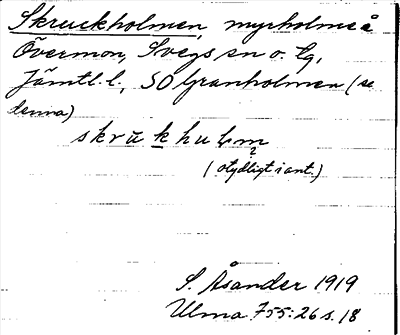 Skruckholmen, myrholme å
Övermon, Svegs sn o. lg,
Jämtl. l., SO Granholmen (se
denna)
skrukhulm
?
(otydligt i ant.)
S. Åsander 1919
Ulma 755:26 s. 18